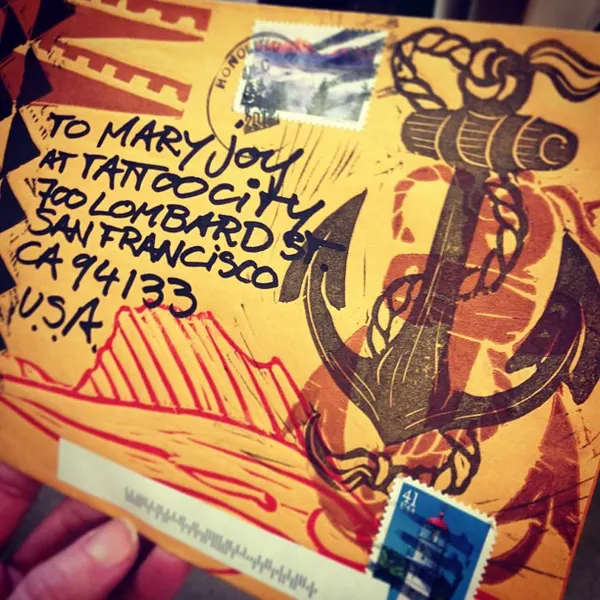 HONOLULU
TO MARY JOY
AT TATTOO CITY
700 LOMBARD ST.
SAN FRANCISCO
CA 94133
U.S.A.
41
USA